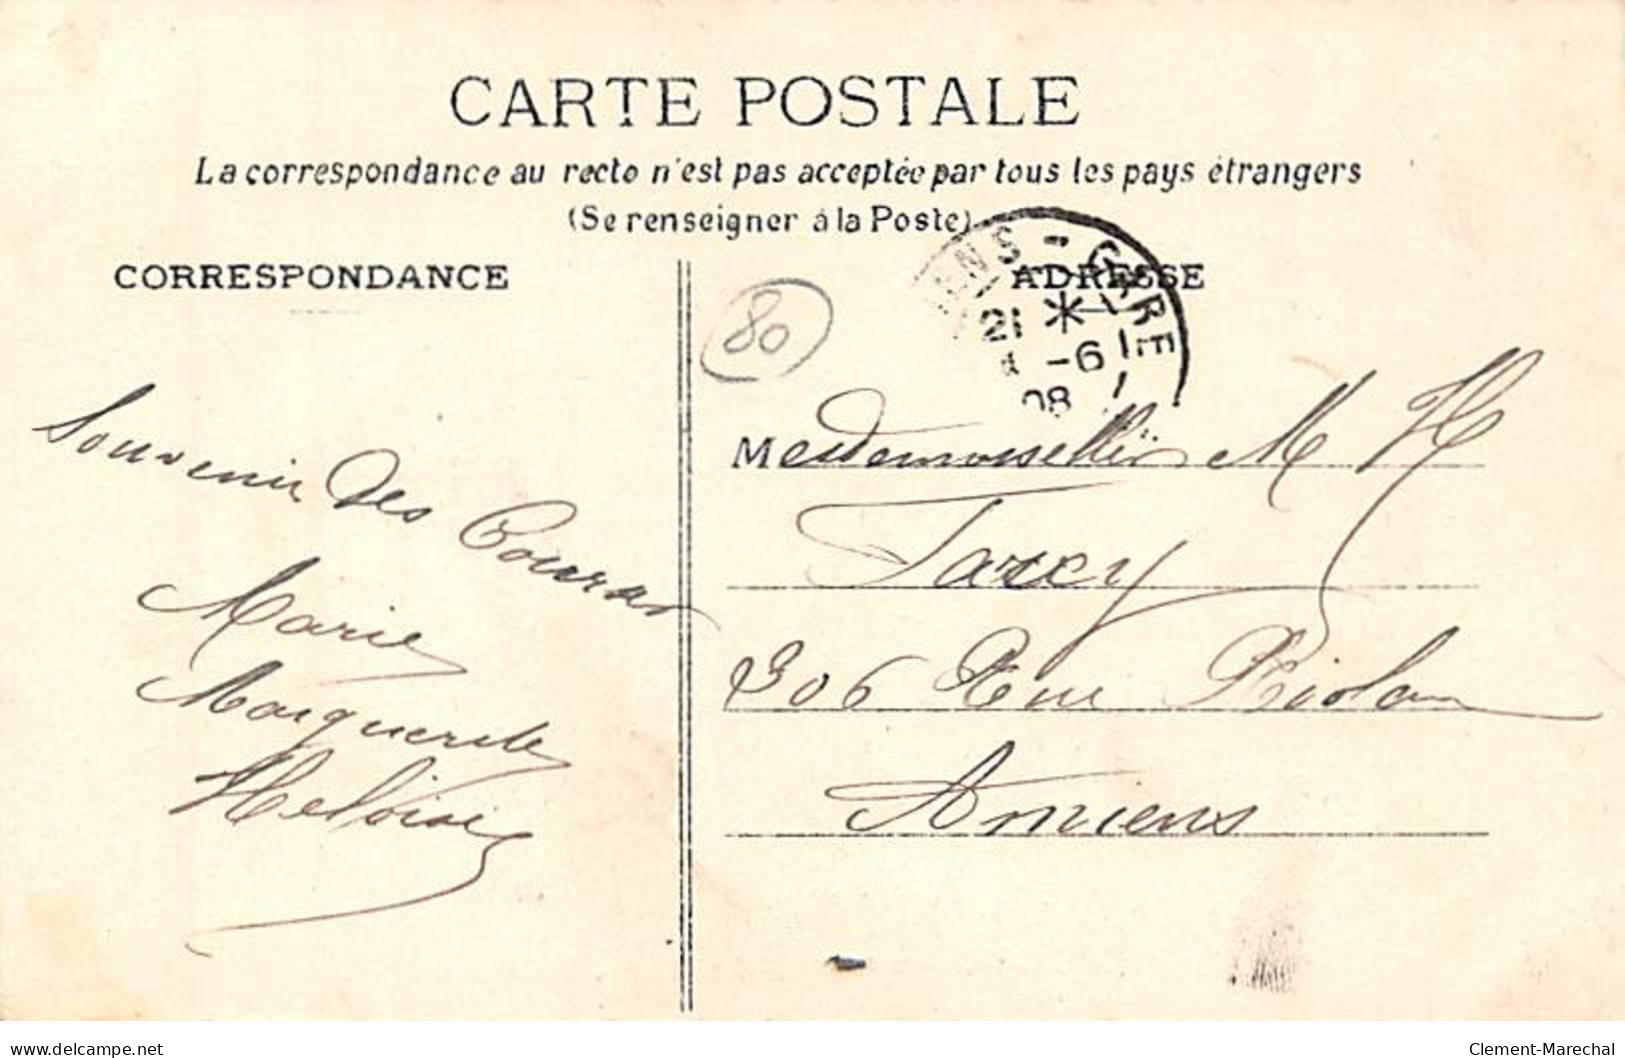 CARTE POSTALE
La correspondance au recto n'est pas acceptée par tous les pays étrangers
(Se renseigner à la Poste)
CORRESPONDANCE
ADRESSE
80
ENS - GARE
21 *
-6
08
Souvenir des Courses
Marie
Marguerite
Heloise
Mesdemoiselles M H
306 Rue Riolan
Amiens
www.delcampe.net
Clement-Marechal